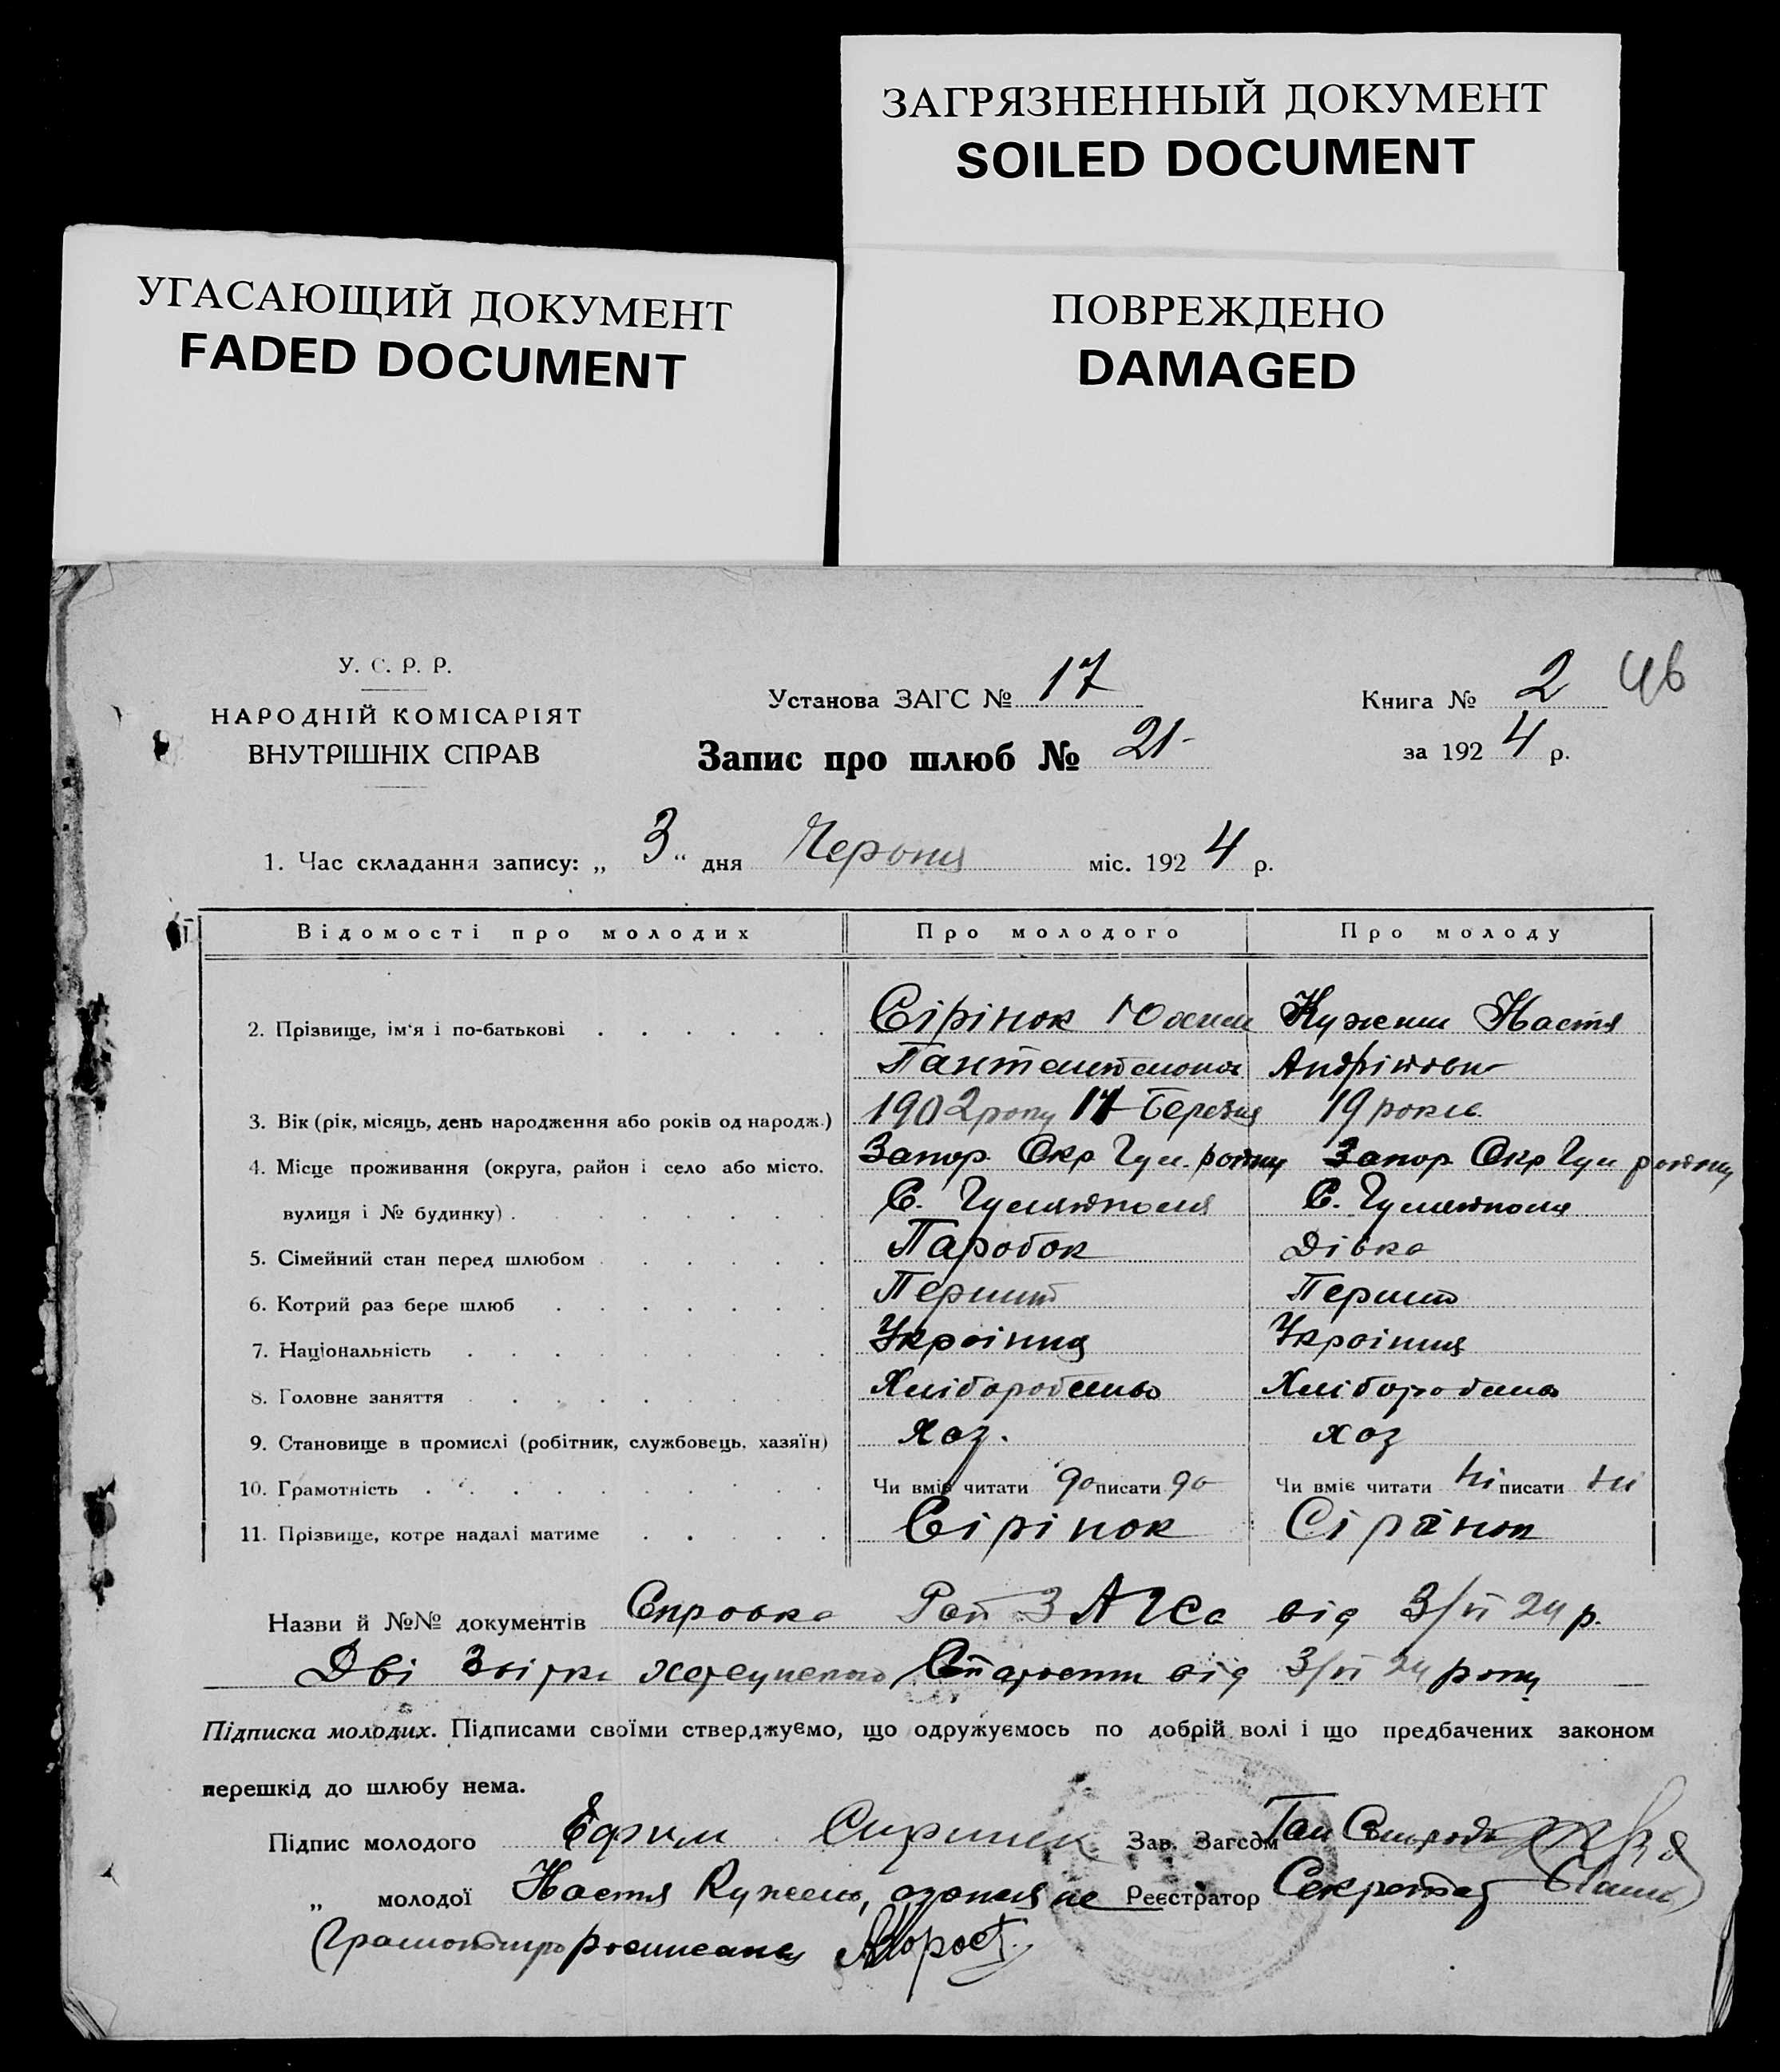 ЗАГРЯЗНЕННЫЙ ДОКУМЕНТ
SOILED DOCUMENT
УГАСАЮЩИЙ ДОКУМЕНТ
FADED DOCUMENT
ПОВРЕЖДЕНО
DAMAGED
У. С. Р. Р.
НАРОДНІЙ КОМІСАРІЯТ
ВНУТРІШНІХ СПРАВ
Установа ЗАГС № 17
Запис про шлюб № 21-
Книга № 2 46
за 1924 р.
1. Час складання запису: „ 3 “ дня Червня міс. 1924 р.
Відомості про молодих Про молодого Про молоду
2. Прізвище, ім'я і по-батькові Сірінок Кужель Настя
Андріівни
3. Вік (рік, місяць, день народження або років од народж.) 1902 року 17 Березня 19 років
4. Місце проживання (округа, район і село або місто. Запор Окр Гул. району Запор Окр Гул району
вулиця і № будинку) С. Гуляйполя С. Гуляйполя
5. Сімейний стан перед шлюбом Паробок Дівка
6. Котрий раз бере шлюб Перший Перший
7. Національність Украінця Украінця
8. Головне заняття Хліборобство Хліборобство
9. Становище в промислі (робітник, службовець, хазяїн) хаз. хаз
10. Грамотність Чи вміє читати да писати да Чи вміє читати ні писати ні
11. Прізвище, котре надалі матиме Сірінок Сірінок
Назви й №№ документів Справка Рай ЗАГСа від 3/VI 24 р.
Дві від 3/VI 24 року
Підписка молодих. Підписами своїми стверджуємо, що одружуємось по добрій волі і що предбачених законом
перешкід до шлюбу нема.
Підпис молодого Ефим Сиринек Зав. Загсом
„ молодої Настя Кужель, а за нея не Реєстратор Секретар
грамотную росписався Мороз